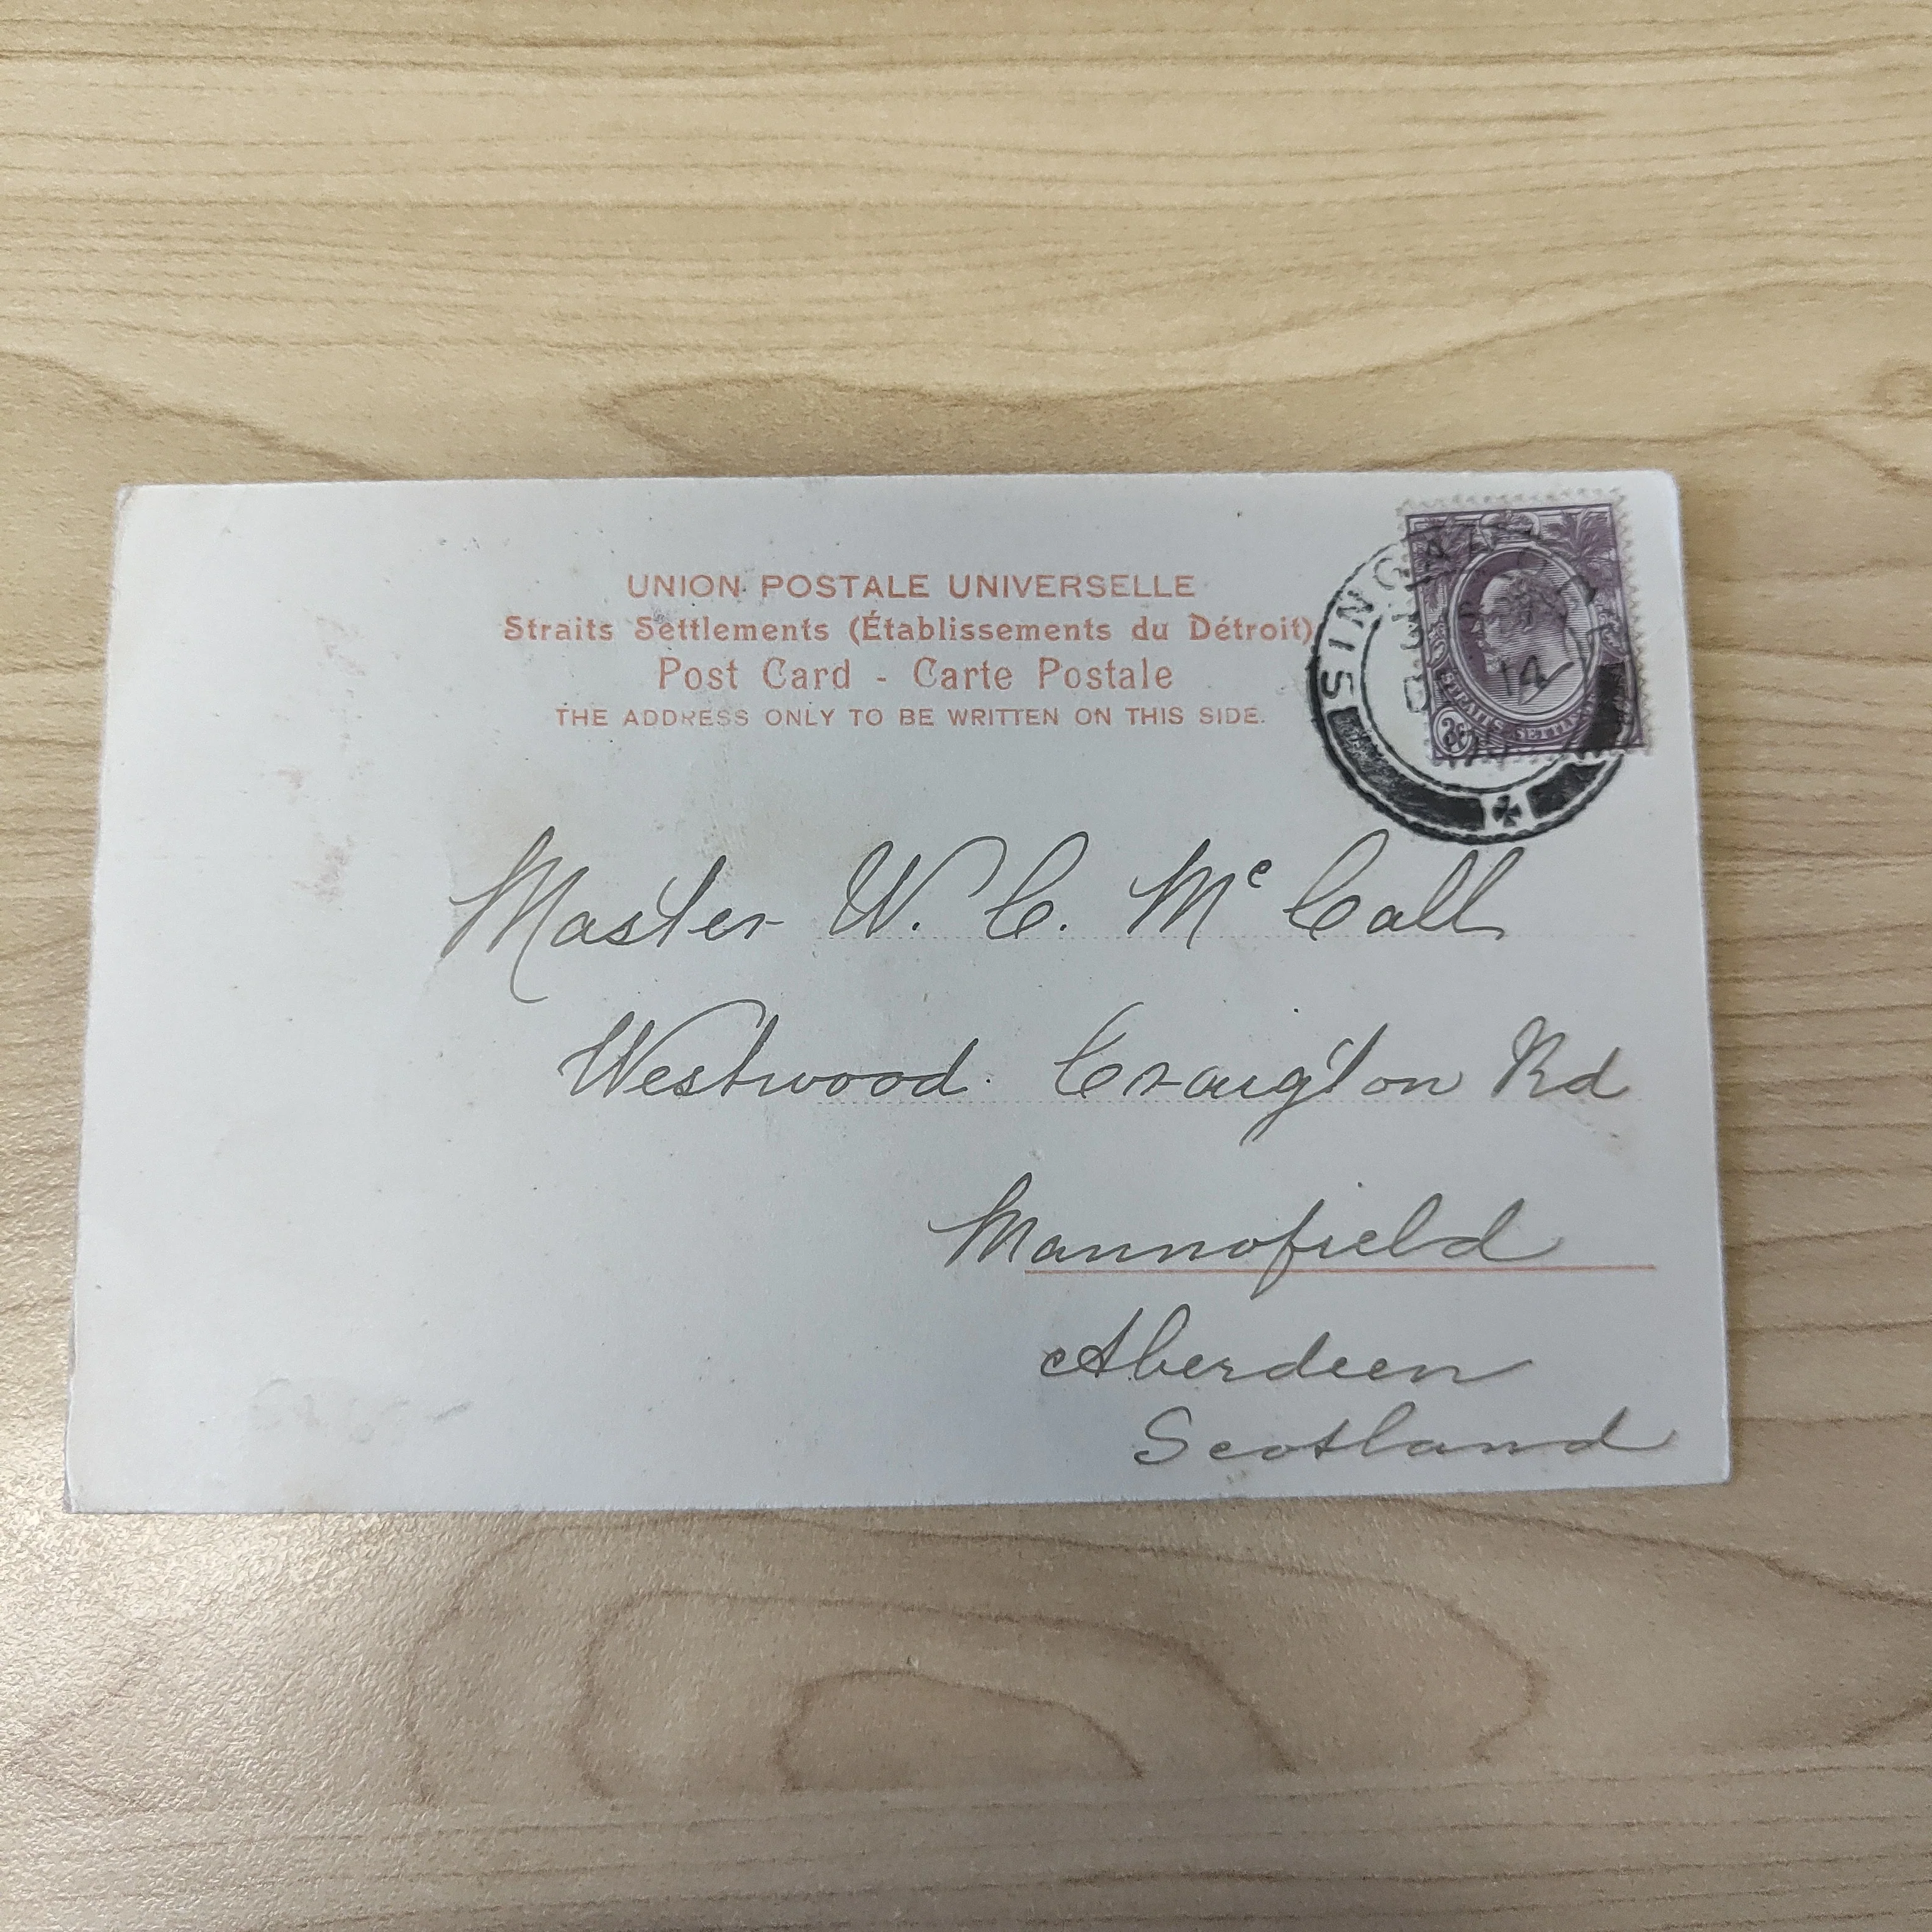 UNION POSTALE UNIVERSELLE
Straits Settlements (Établissements du Détroit)
Post Card - Carte Postale
THE ADDRESS ONLY TO BE WRITTEN ON THIS SIDE.
STRAITS SETTLEMENTS
Master W. C. Mc Call
Westwood. Craigton Rd
Mannofield
Aberdeen
Scotland